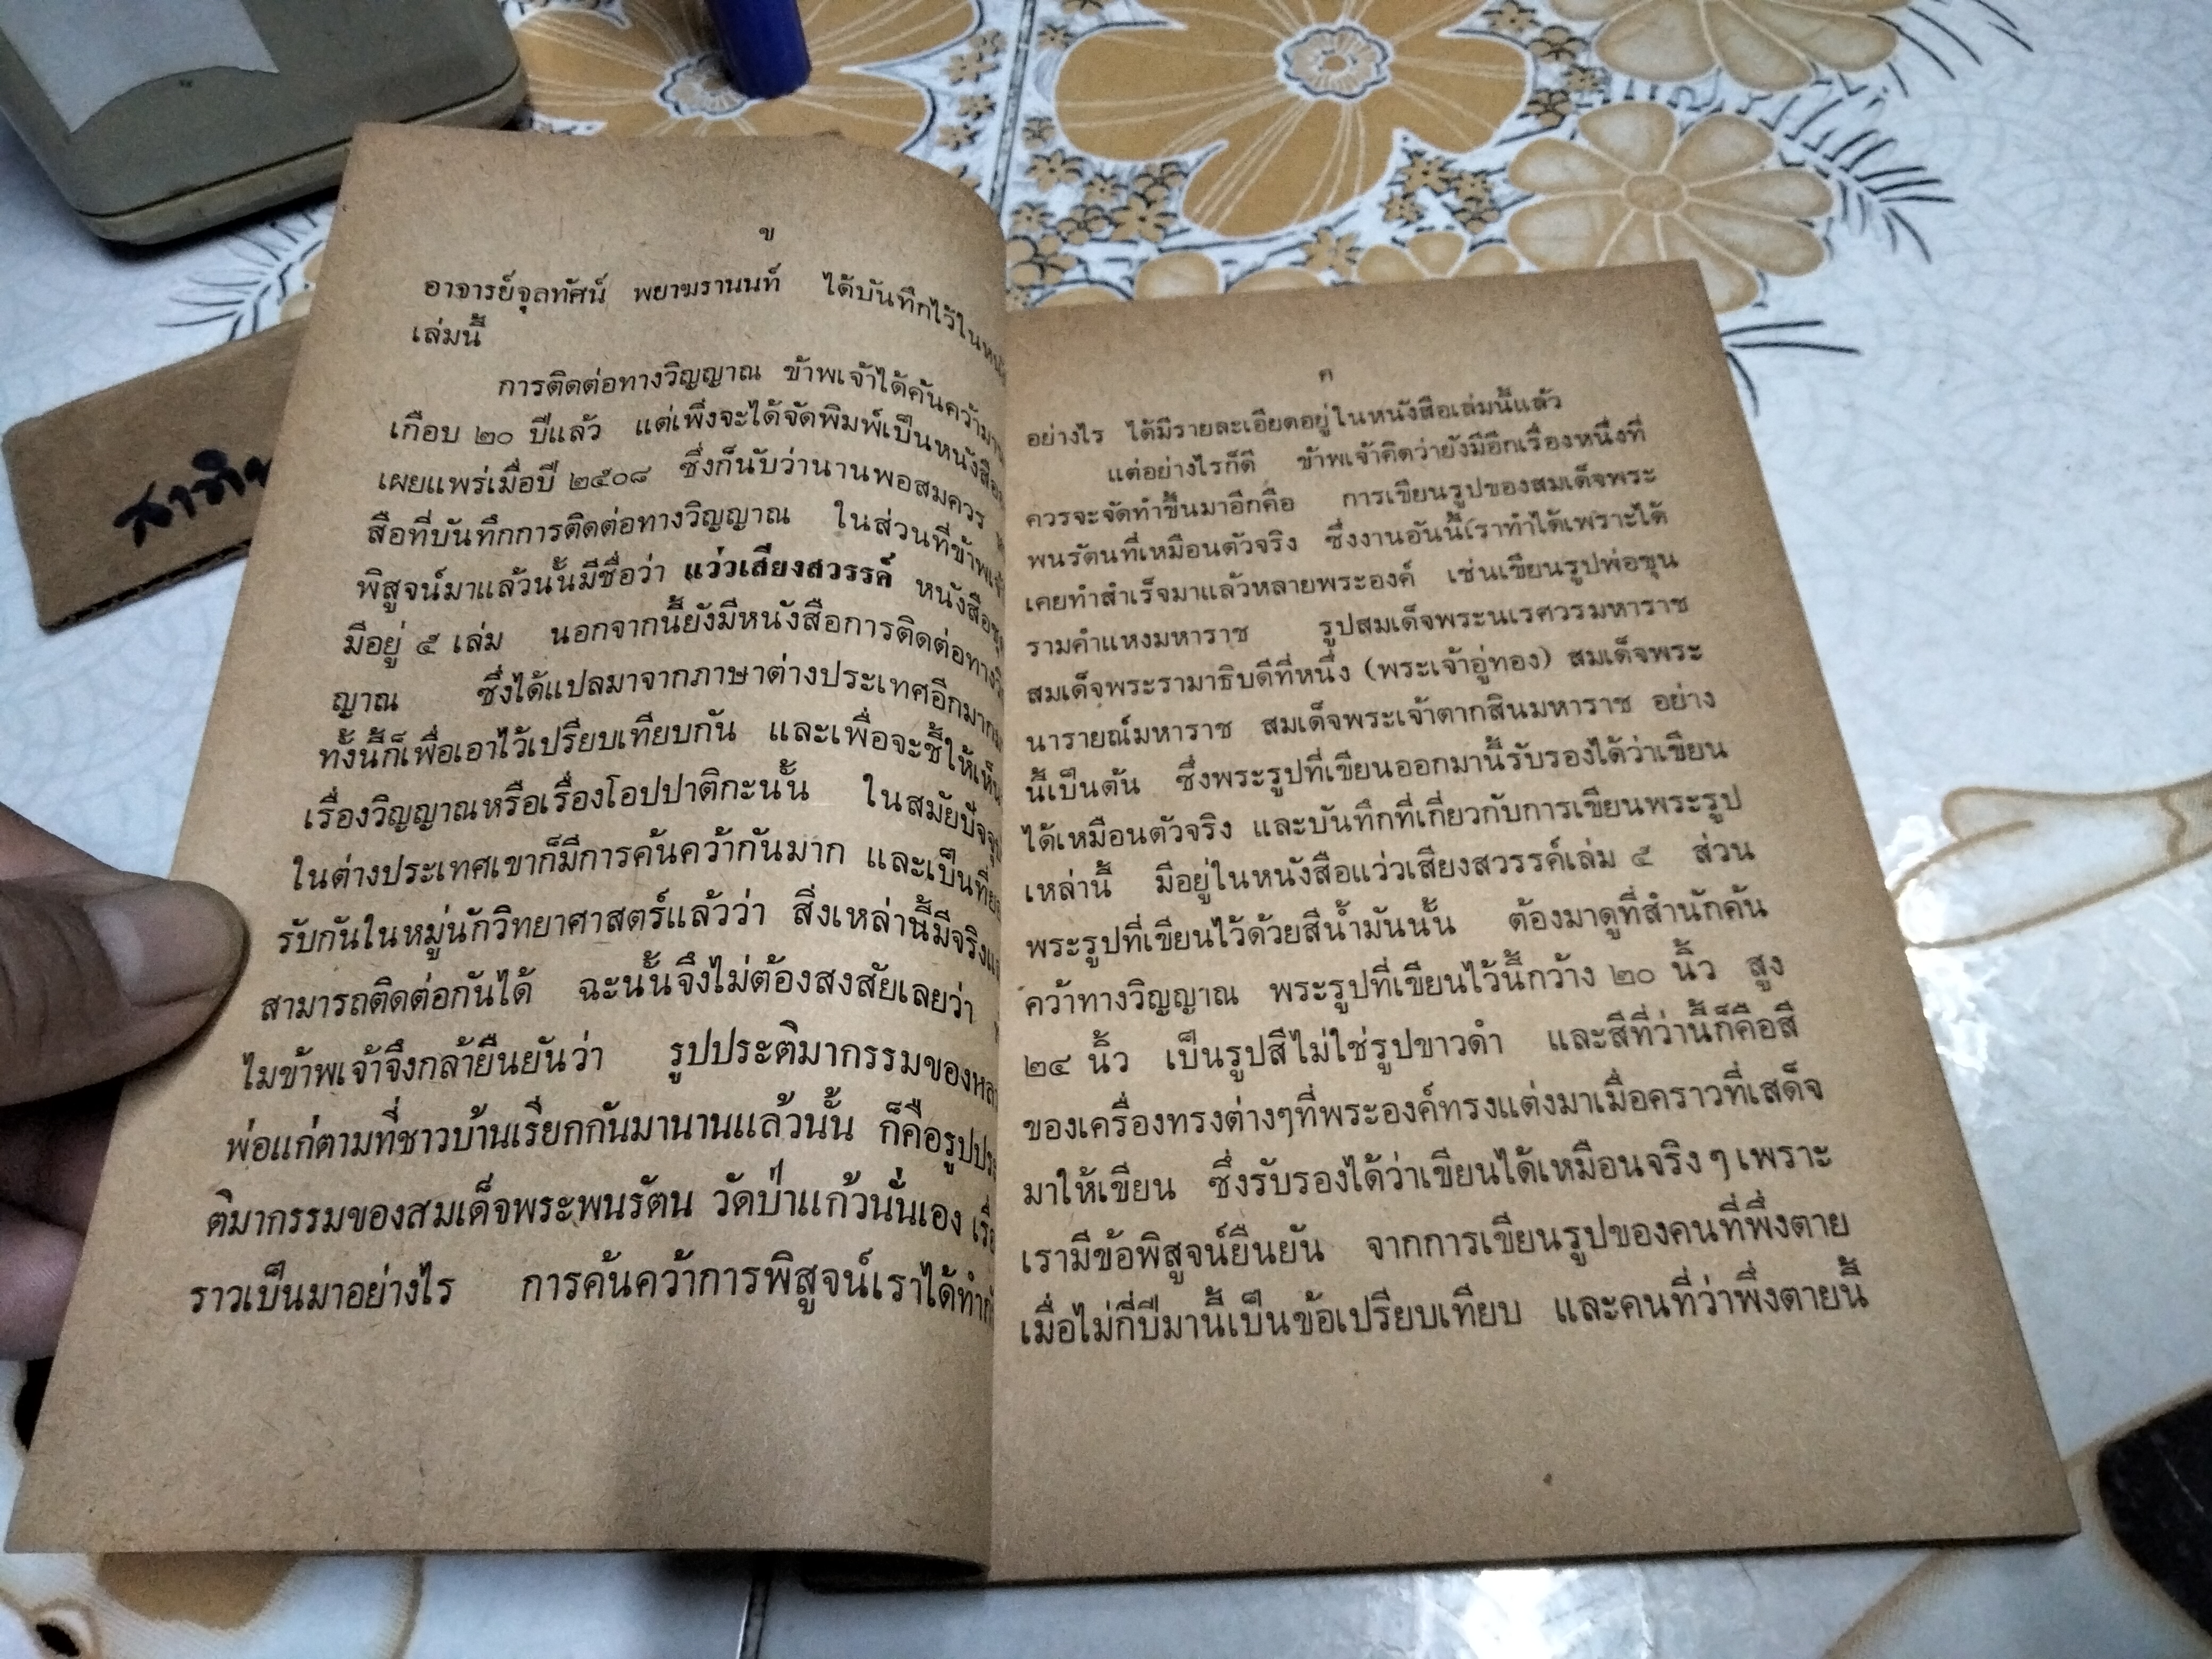 ข
อาจารย์จุลทัศน์ พยาฆรานนท์ ได้บันทึกไว้ใน
เล่มนี้
การติดต่อทางวิญญาณ ข้าพเจ้าได้ค้นคว้ามา
เกือบ ๒๐ ปีแล้ว แต่เพิ่งจะได้จัดพิมพ์เป็นหนังสือ
เผยแพร่เมื่อปี ๒๕๐๘ ซึ่งก็นับว่านานพอสมควร
สือที่บันทึกการติดต่อทางวิญญาณ ในส่วนที่ข้าพเจ้า
พิสูจน์มาแล้วนั้นมีชื่อว่า แว่วเสียงสวรรค์ หนังสือ
มีอยู่ ๕ เล่ม นอกจากนี้ยังมีหนังสือการติดต่อทาง
ญาณ ซึ่งได้แปลมาจากภาษาต่างประเทศอีกมาก
ทั้งนี้ก็เพื่อเอาไว้เปรียบเทียบกัน และเพื่อจะชี้ให้เห็น
เรื่องวิญญาณหรือเรื่องโอปปาติกะนั้น ในสมัยปัจจุ
ในต่างประเทศเขาก็มีการค้นคว้ากันมาก และเป็นที่
รับกันในหมู่นักวิทยาศาสตร์แล้วว่า สิ่งเหล่านี้มีจริง
สามารถติดต่อกันได้ ฉะนั้นจึงไม่ต้องสงสัยเลยว่า
ไมข้าพเจ้าจึงกล้ายืนยันว่า รูปประติมากรรมของ
พ่อแก่ตามที่ชาวบ้านเรียกกันมานานแล้วนั้น ก็คือรูปประ
ติมากรรมของสมเด็จพระพนรัตน วัดป่าแก้วนั่นเอง เรื่อ
ราวเป็นมาอย่างไร การค้นคว้าการพิสูจน์เราได้ทำ
ค
อย่างไร ได้มีรายละเอียดอยู่ในหนังสือเล่มนี้แล้ว
แต่อย่างไรก็ดี ข้าพเจ้าคิดว่ายังมีอีกเรื่องหนึ่งที่
ควรจะจัดทำขึ้นมาอีกคือ การเขียนรูปของสมเด็จพระ
พนรัตนที่เหมือนตัวจริง ซึ่งงานอันนี้เราทำได้เพราะได้
เคยทำสำเร็จมาแล้วหลายพระองค์ เช่นเขียนรูปพ่อขุน
รามคำแหงมหาราช รูปสมเด็จพระนเรศวรมหาราช
สมเด็จพระรามาธิบดีที่หนึ่ง (พระเจ้าอู่ทอง) สมเด็จพระ
นารายณ์มหาราช สมเด็จพระเจ้าตากสินมหาราช อย่าง
นี้เป็นต้น ซึ่งพระรูปที่เขียนออกมานี้รับรองได้ว่าเขียน
ได้เหมือนตัวจริง และบันทึกที่เกี่ยวกับการเขียนพระรูป
เหล่านี้ มีอยู่ในหนังสือแว่วเสียงสวรรค์เล่ม ๕ ส่วน
พระรูปที่เขียนไว้ด้วยสีน้ำมันนั้น ต้องมาดูที่สำนักค้น
คว้าทางวิญญาณ พระรูปที่เขียนไว้นี้กว้าง ๒๐ นิ้ว สูง
๒๔ นิ้ว เป็นรูปสีไม่ใช่รูปขาวดำ และสีที่ว่านี้ก็คือสี
ของเครื่องทรงต่างๆที่พระองค์ทรงแต่งมาเมื่อคราวที่เสด็จ
มาให้เขียน ซึ่งรับรองได้ว่าเขียนได้เหมือนจริง ๆ เพราะ
เรามีข้อพิสูจน์ยืนยัน จากการเขียนรูปของคนที่พึ่งตาย
เมื่อไม่กี่ปีมานี้เป็นข้อเปรียบเทียบ และคนที่ว่าพึ่งตายนี้